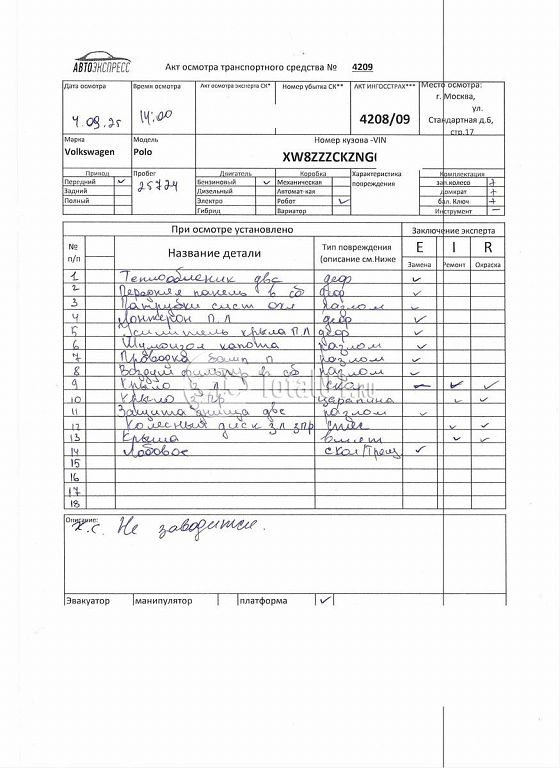 АВТОЭКСПРЕСС
Акт осмотра транспортного средства № 4209
Дата осмотра Время осмотра Акт осмотра эксперта СК* Номер убытка СК** АКТ ИНГОССТРАХ*** Место осмотра:
4.09.25 14:00 4208/09 г. Москва,
ул.
Стандартная д.6,
стр.17
Марка Модель Номер кузова -VIN
Volkswagen Polo XW8ZZZCKZNG
Привод Пробег Двигатель Коробка Характеристика повреждения Комплектация
Передний ✓ 25774 Бензиновый ✓ Механическая зап.колесо +
Задний Дизельный Автомат-кая домкрат +
Полный Электро Робот ✓ бал. Ключ +
Гибрид Вариатор Инструмент –
При осмотре установлено Заключение эксперта
№ п/п Название детали Тип повреждения (описание см.Ниже E I R
Замена Ремонт Окраска
1 Теплообменик двс деф ✓
2 Передняя панель в сб деф ✓
3 Патрубки сист охл разлом ✓
4 Лонжерон П.Л деф ✓
5 Усилитель крыла П Л деф ✓
6 Шумоизол капота разлом ✓
7 Проводка бамп п разлом ✓
8 Воздуш фильтр в сб разлом ✓
9 Крыло з л ✓ ✓
10 Крыло з пр царапина ✓ ✓
11 Защита днища двс разлом ✓
12 Колесный диск зл зпр ✓ ✓
13 Крыша вмят ✓ ✓
14 Лобовое скол/Трещ ✓
15
16
17
18
Totalo.ru
Описание:
х.с. Не заводится.
Эвакуатор манипулятор платформа ✓